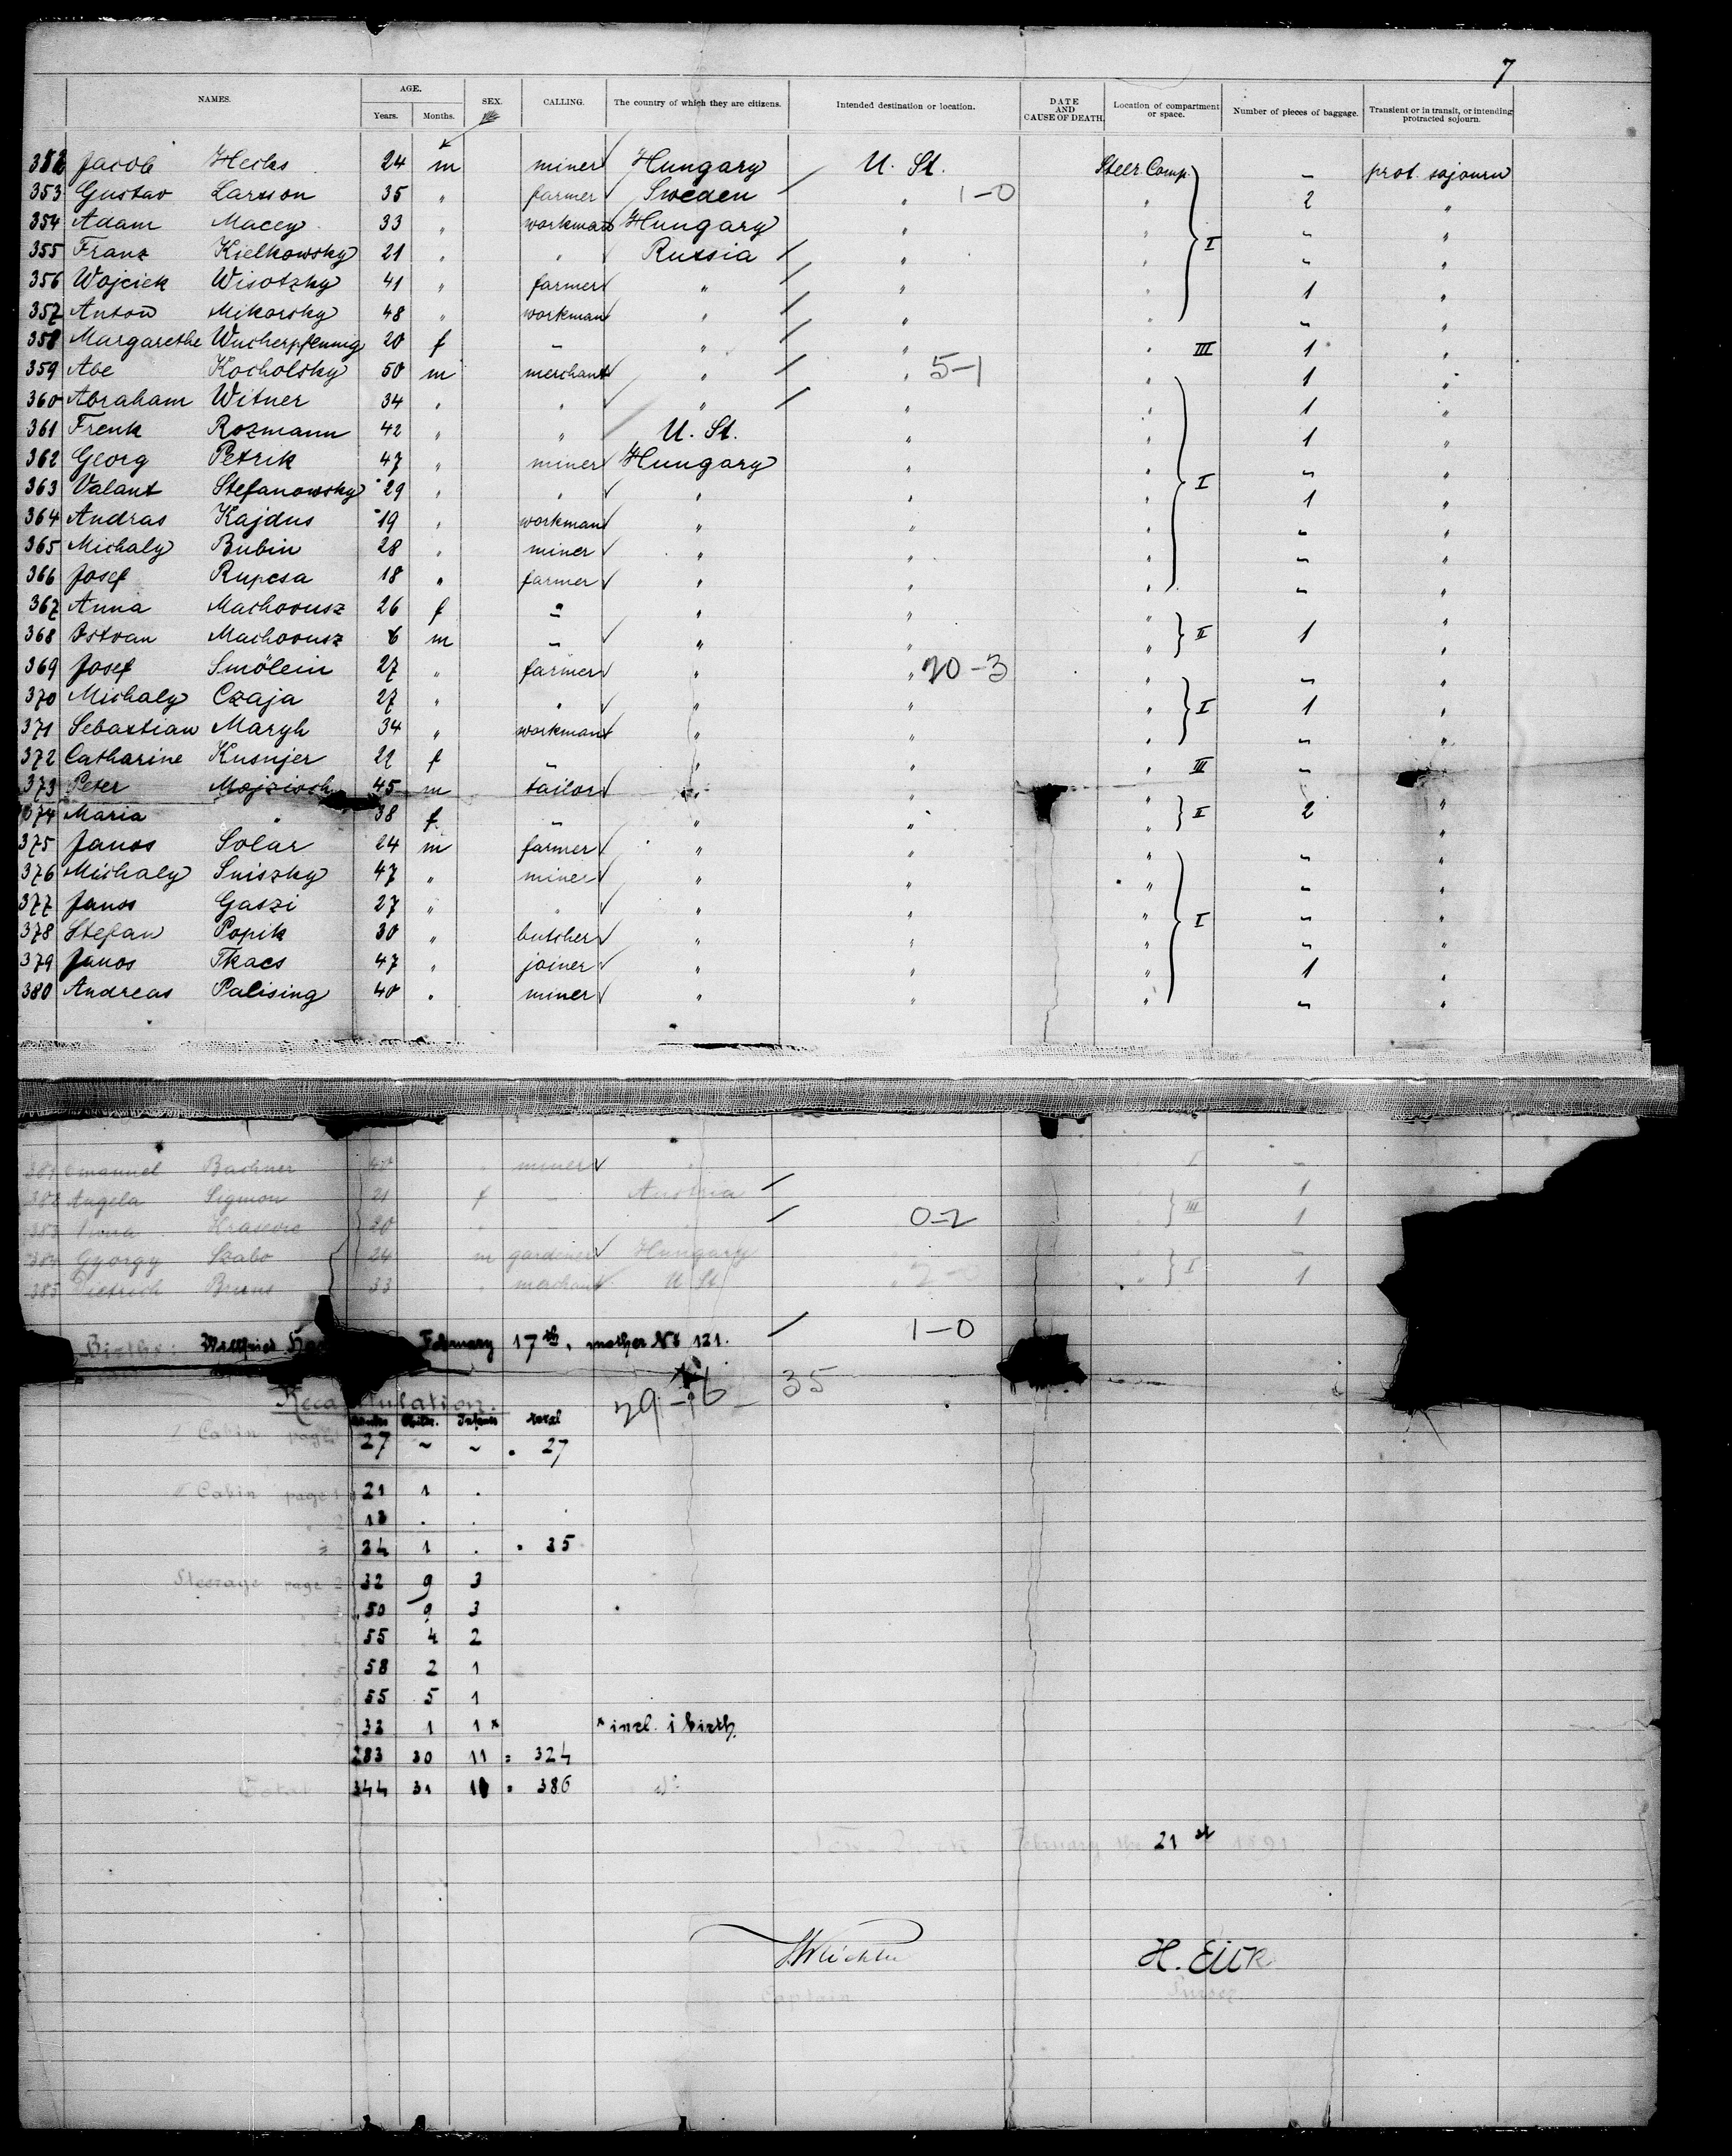 7
NAMES. AGE. Years. Months. SEX. CALLING. The country of which they are citizens. Intended destination or location. DATE AND CAUSE OF DEATH. Location of compartment or space. Number of pieces of baggage. Transient or in transit, or intending protracted sojourn.
352 Jacob Hecks 24 m miner Hungary U. St. Steer. Comp. - prot. sojourn
353 Gustav Larsson 35 " farmer Sweden " 1-0 " 2 "
354 Adam Macey 33 " workman Hungary " " - "
355 Franz Kielkowsky 21 " " Russia " " I - "
356 Wojciek Wisotzky 41 " farmer " " " 1 "
357 Anton Mikorsky 48 " workman " " " - "
358 Margarethe Wucherpfennig 20 f - " " " III 1 "
359 Abe Kocholsky 50 m merchant " " 5-1 " 1 "
360 Abraham Witner 34 " " " " " 1 "
361 Frenk Rozmann 42 " " U. St. " " 1 "
362 Georg Petrik 47 " miner Hungary " " - "
363 Valant Stefanowsky 29 " " " " " I 1 "
364 Andras Kajdus 19 " workman " " " - "
365 Michaly Bubin 28 " miner " " " - "
366 Josef Rupcsa 18 " farmer " " " - "
367 Anna Machovusz 26 f - " " " "
368 Istvan Machovusz 6 m - " " " II 1 "
369 Josef Smölein 27 " farmer " " 20-3 " - "
370 Michaly Czaja 27 " " " " " I 1 "
371 Sebastian Maryh 34 " workman " " " - "
372 Catharine Kusnjer 22 f - " " " III - "
373 Peter Mojzisch 45 m tailor " " " "
374 Maria " 38 f - " " " II 2 "
375 Janos Solar 24 m farmer " " " - "
376 Michaly Sniszky 47 " miner " " " - "
377 Janos Gaszi 27 " " " " " I - "
378 Stefan Popik 30 " butcher " " " - "
379 Janos Tkacs 47 " joiner " " " 1 "
380 Andreas Palising 40 " miner " " " - "
381 Emanuel Bachner 40 miner I -
382 Angela Sigmon 21 f - Austria 1
383 Hrasovic 20 " - 0-2 III 1
384 Gyorgy Szabo 24 m gardener Hungary -
385 Dietrich Bruns 33 " merchant U St " 2-0 " I 1
Births: February 17th, mother No 121. 1-0
Recapitulation. 29-16 35
Infants total
I Cabin page 1 27 ~ ~ = 27
II Cabin page 1 21 1 .
2 13 . .
34 1 . = 35
Steerage page 2 32 9 3
3 50 9 3
4 55 4 2
5 58 2 1
6 55 5 1
7 32 1 1 * * incl. 1 birth.
283 30 11 = 324
Total 344 31 11 = 386
New-York February the 21st 1891
H. Eick
Captain Purser